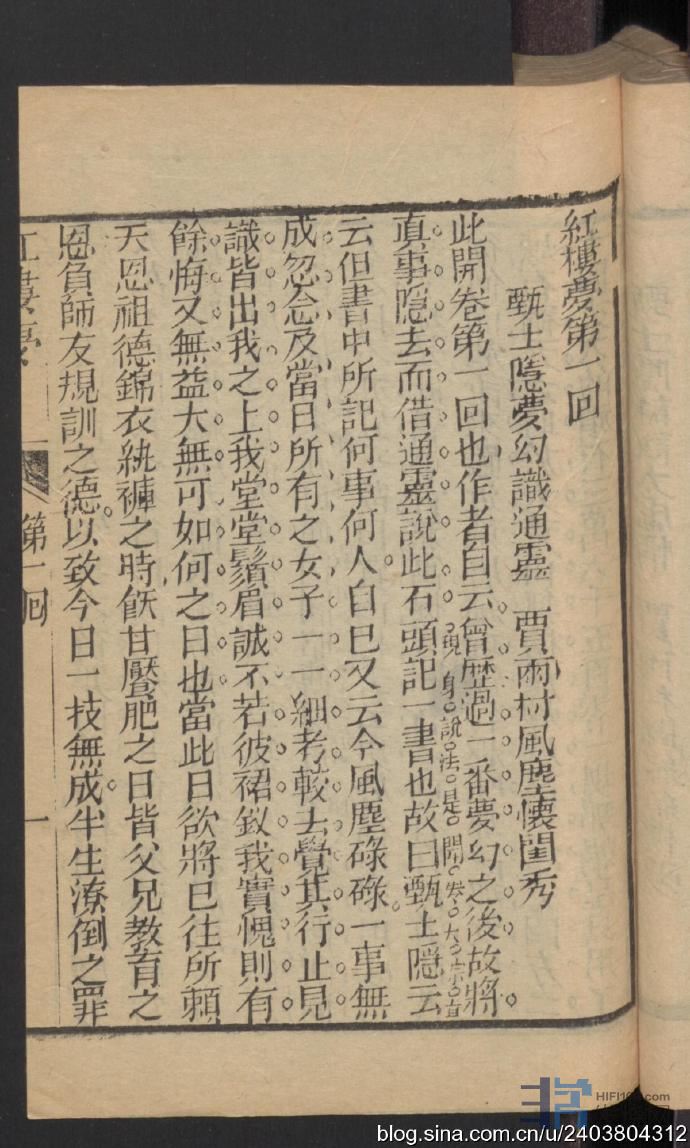 紅樓夢第一回
甄士隱夢幻識通靈 賈雨村風塵懷閨秀
此開卷第一回也作者自云曾歷過一番夢幻之後故將
現身說法是開卷大宗旨
真事隱去而借通靈說此石頭記一書也故曰甄士隱云
云但書中所記何事何人自己又云今風塵碌碌一事無
成忽念及當日所有之女子一一細考較去覺其行止見
識皆出我之上我堂堂鬚眉誠不若彼裙釵我實愧則有
餘悔又無益大無可如何之日也當此日欲將已往所賴
天恩祖德錦衣紈褲之時飫甘饜肥之日皆父兄教育之
恩負師友規訓之德以致今日一技無成半生潦倒之罪
紅樓夢 第一回 一
HIFI168.com
blog.sina.com.cn/u/2403804312